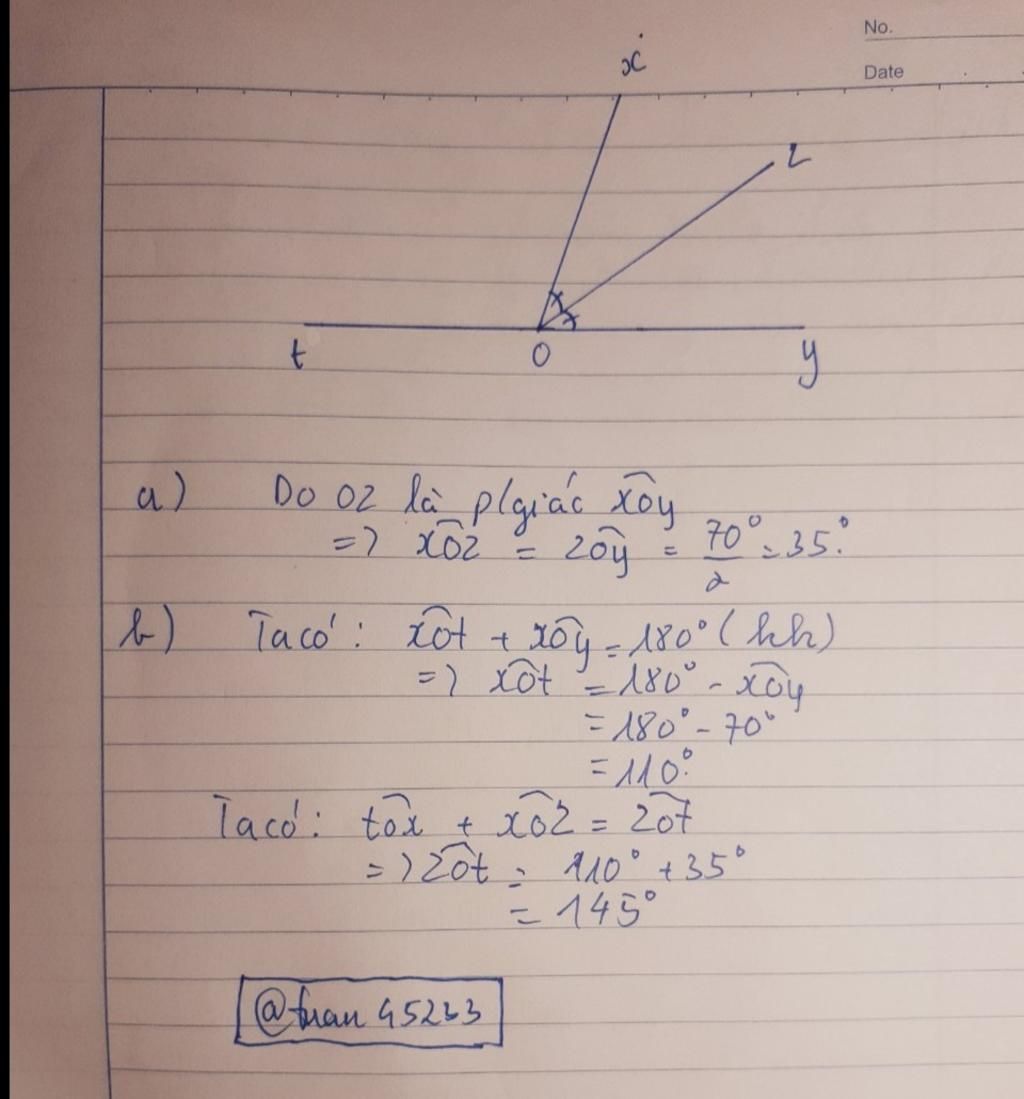 No.
Date
x
z
t
O
y
a) Do Oz là p/giác xÔy
=> xÔz = zÔy = 70°/2 = 35°.
b) Ta có: xÔt + xÔy = 180° (kb)
=> xÔt = 180° - xÔy
= 180° - 70°
= 110°.
Ta có: tÔx + xÔz = zÔt
=> zÔt = 110° + 35°
= 145°
@tuan45233